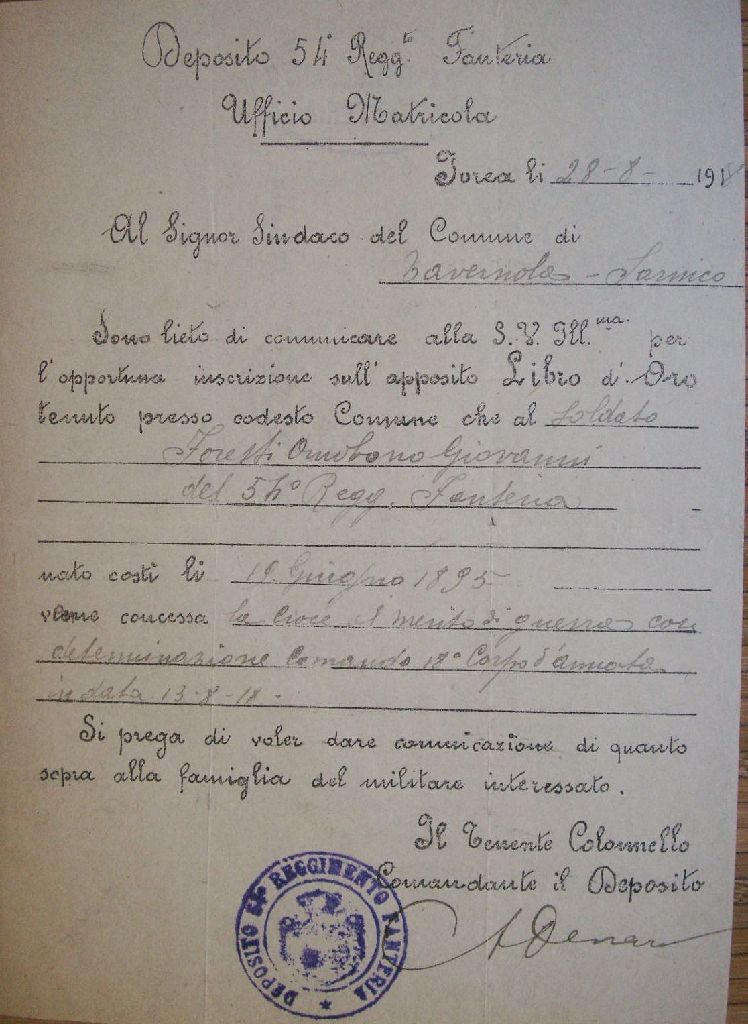 Deposito 54° Regg.to Fanteria
Ufficio Matricola
Ivrea li 28-8- 1918
Al Signor Sindaco del Comune di
Tavernola - Sarnico
Sono lieto di comunicare alla S.V. Ill.ma per
l'opportuna inscrizione sull'apposito Libro d'Oro
tenuto presso codesto Comune che al soldato
Foresti Omobono Giovanni
del 54° Regg. Fanteria
nato costì li Giugno 1895
venne concessa la Croce al merito di guerra con
determinazione Comando 18° Corpo d'armata
in data 13-8-18.
Si prega di voler dare comunicazione di quanto
sopra alla famiglia del militare interessato.
Il Tenente Colonnello
Comandante il Deposito
DEPOSITO 54° REGGIMENTO FANTERIA